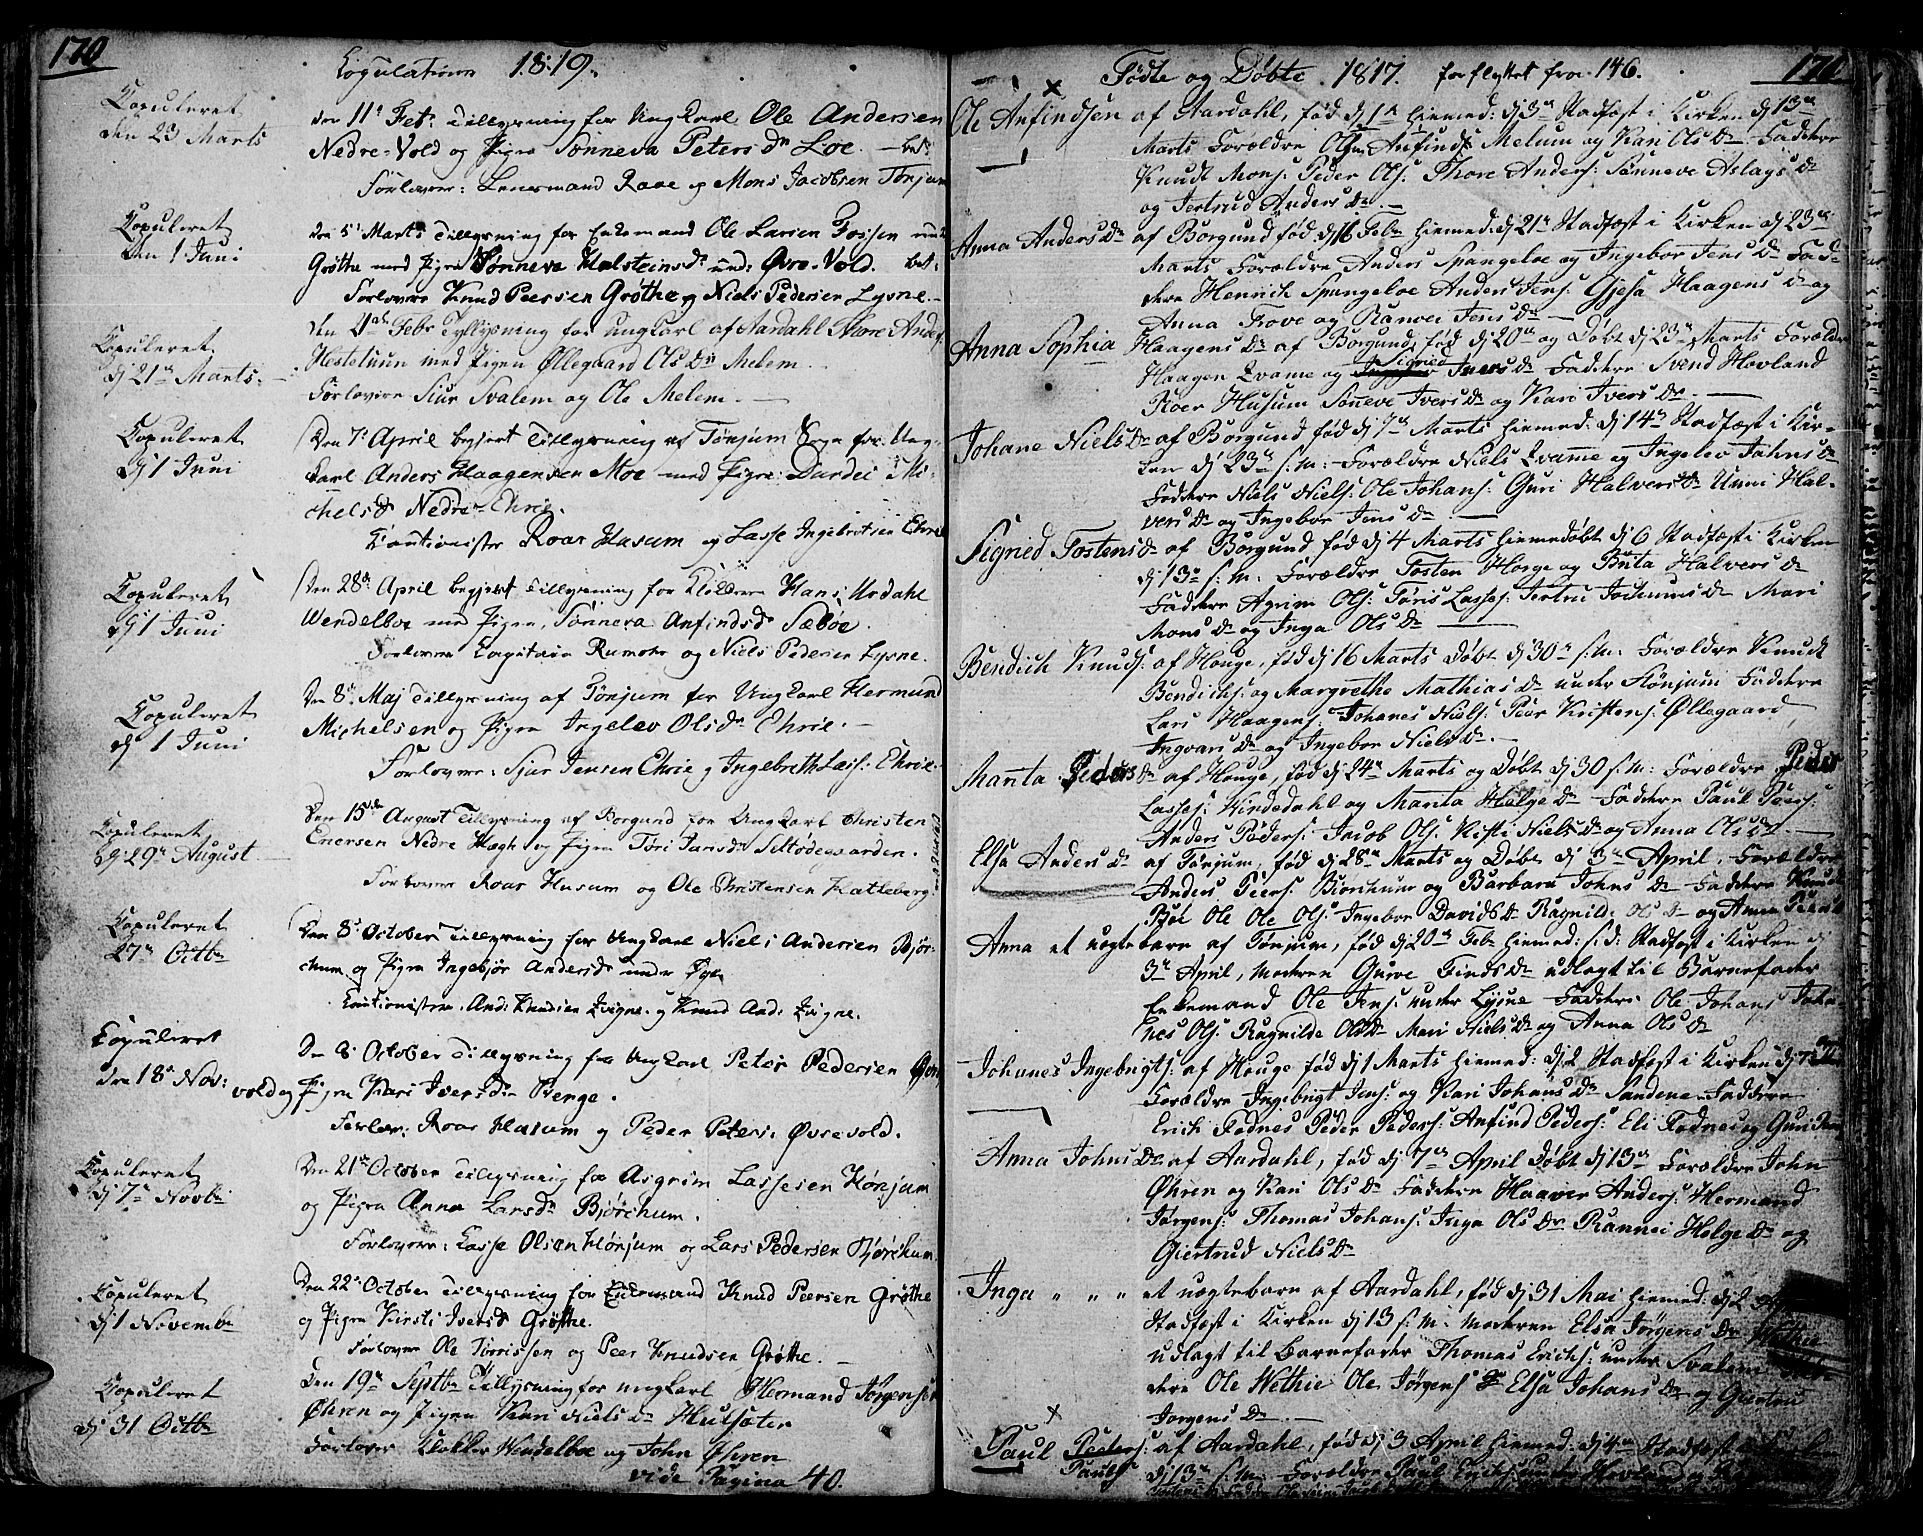 170
Copulation 1819.
Copuleret
den 23 Marts
den 11te Febr. Tillysning for Ungkarl Ole Andersen
Nedre-Vold og Pigen Sønneva Peters Dr. Loe. — bet.
Forlovere: Lensmand Rave og Mons Jacobsen Tønjum
Copuleret
den 1 Juni
den 5te Marts Tillysning for Enkemand Ole Larsen Fossen
Grøthe med Pigen Sønneva Halsteinsdr. und: Øvre-Vold. bet.
Forlovere Knud Peersen Grøthe og Niels Pedersen Lysne.
Copuleret
d. 21de Marts.
den Febr Tillysning for ungkarl af Aardahl Thore Anders.
Hestetuun med Pigen Øllegaard Ols Dr. Melem.
Forlovere Siur Svalem og Ole Melem.
Copuleret
d. 1 Juni
Den 7de April begjert Tillysning af Tønjum Sogn for Ung-
karl Anders Haagensen Moe med Pigen: Durdei Mi-
chelsdr Nedre-Ehrie.
Cautionister Roar Husum og Lasse Ingebretsen Ehrie
Copuleret
d. 1 Juni
Den 28de April begjert Tillysning for Klokker Hans Urdahl
Wendelboe med Pigen Sønneva Anfindsdr Sæbøe.
Forlovere Capitain Rumohr og Niels Pedersen Lysne.
Copuleret
d. 1 Juni
Den 8de Maj Tillysning af Tønjum for Ungkarl Hermund
Michelsen og Pigen Ingelev Olsdr Ehrie.
Forlovere: Sjur Jensen Ehrie og Ingebreth Lass: Ehrie
Copuleret
d. 29de August
Den 15de August Tillysning af Borgund for Ungkarl Christen
Enersen Nedre Hægh og Pigen Tøri Jansdr Seltødegaarden.
Forlovere Roar Husum og Ole Christensen Katteberg.
Copuleret
27de Octbr
Den 8de October Tillysning for Ungkarl Niels Andersen Bjør-
chum og Pigen Ingebjør Andersdr under Øye
Cautionistere. And: Knudsen Qvigne og Knud And: Qvigne.
Copuleret
den 18de Nov:
Den 8 October Tillysning for Ungkarl Peter Pedersen
vold og Pigen Kari Iversdr Stenge.
Forlov: Roar Husum og Peder Peters: Øvrevold.
Copuleret
d. 7de Novbr
Den 21de October Tillysning for Asgrim Lassesen Hønjum
og Pigen Anna Larsdr Bjørchum.
Forlovere: Lasse Olsen Hønjum og Lars Pedersen Bjørchum
Copuleret
d. 1 Novembr
Den 22de October Tillysning for Enkemand Knud Peersen Grøthe
og Pigen Kirsti Iversdr Grøthe.
Forlovere Ole Torrissen og Peer Knudsen Grøthe.
Copuleret
d. 31 Octbr
Den 19de Septbr Tillysning for ungkarl Hermand Jørgensen
Øhren og Pigen Kari Niels Dr. Hulsæter
Forlovere Klokker Wendelboe og John Øhren
vide Pagina 40.
171
Fødte og Døbte 1817. forflyttet fra 146.
Ole Anfindsen af Aardahl, fød d. 1 hiemed: d. 3de Stadfæst i Kirken d. 13de
Marts Forældre Anfind Melum og Kari Ols Dr. Faddere
Knudt Mons: Peder Ols: Thore Anders: Sønneve Aslags Dr.
og Jertrud Anders Dr.
Anna Anders Dr. af Borgund fød d. 16 Febr hiemed: d. 21de Stadfæst i Kirken d. 23de
Marts Forældre Anders Spangeloe og Ingebor Jens Dr. Fad-
dere Henrich Spangeloe Anders Jens: Gjesa Haagens Dr. og
Anna Trove og Ranvei Jens Dr.
Anna Sophia Haagens Dr. af Borgund, fød d. 20de og Døbt d. 23de Marts Forældre
Haagen Qvame og Sigried Ivers Dr. Faddere Svend Hovland
Roer Husum Sønneve Ivers Dr. og Kari Ivers Dr.
Johane Niels Dr. af Borgund fød d. 7de Marts hiemed: d. 14de Stadfæst i Kir-
ken d. 23de s. M: Forældre Niels Qvame og Ingelev Johns Dr.
Faddere Niels Niels: Ole Johans: Guri Halvers Dr. Unni Hal-
vers Dr. og Ingebor Jens Dr.
Sigried Tostens Dr. af Borgund fød d. 4 Marts hiemedøbt d. 6 Stadfæst i Kirken
d. 13de s. M. Forældre Tosten Horge og Brita Halvers Dr.
Faddere Agrim Ols: Tøris Lasses: Jertru Jochums Dr. Mari
Mons Dr. og Inga Ols Dr.
Bendich Knuds: af Houge, fød d. 16 Marts Døbt d. 30te s. M. Forældre Knudt
Bendichs: og Margrethe Mathias Dr. under Hønjum Faddere
Lars Haagens: Johanes Niels: Peer Kristens: Øllegaard
Ingvars Dr. og Ingebor Niels Dr.
Marita Peders Dr. af Houge, fød d. 24de Marts og Døbt d. 30 s. M: Forældre Peder
Lasses: Vindedahl og Marita Helge Dr. Faddere Paul Peers:
Anders Peders: Jacob Ols: Kisti Niels Dr. og Anna Ols Dr.
Elsa Anders Dr. af Tønjum, fød d. 28de Marts og Døbt d. 3de April. Forældre
Anders Peers: Biorchum og Barbara Johns Dr. Faddere Knudt
Bøe Ole Ole Ols: Ingebor Davids Dr. Ragnilde Ols Dr. og Anna
Anna et uægtebarn af Tønjum, fød d. 20de Febr hiemed: s. d: Stadfæst i Kirken d
3de April, Moderen Guroe Finds Dr. udlagt til Barnefader
Enkemand Ole Jens: under Lysne Faddere Ole Johans: Joha-
nes Ols: Ragnilde Ols Dr. Mari Niels Dr. og Anna Ols Dr.
Johanes Ingebrigts: af Houge fød d. 1 Marts hiemed: d. 2 Stadfæst i Kirken d. 7de
Forældre Ingebrigt Jens: og Kari Johans Dr. Sandene Faddere
Erich Fodnes Peder Peders: Anfind Peders: Eli Fodnes og Guri
Anna Johns Dr. af Aardahl, fød d. 7de April Døbt d. 13de Forældre John
Øhren og Kari Ols Dr. Faddere Haaver Anders: Hermand
Jørgens: Thomas Johans: Inga Ols Dr. Rannei Helge Dr. og
Giertrud Niels Dr.
Inga „ „ „ et uægtebarn af Aardahl, fød d. 31 Mai hiemed: d. 2
Stadfæst i Kirken d. 13 s. M: Moderen Elsa Jørgens Dr. Wethie
udlagt til Barnefader Thomas Erichs: under Svalem Fad-
dere Ole Wethie Ole Jørgens: Elsa Johans Dr. og Giertru
Jørgens Dr.
Paul Peters: af Aardahl, fød d. 3 April hiemed: d. 4de Stadfæst i
Pauls
d. 13de s. M. Forældre Paul Erichs: under Hovland og